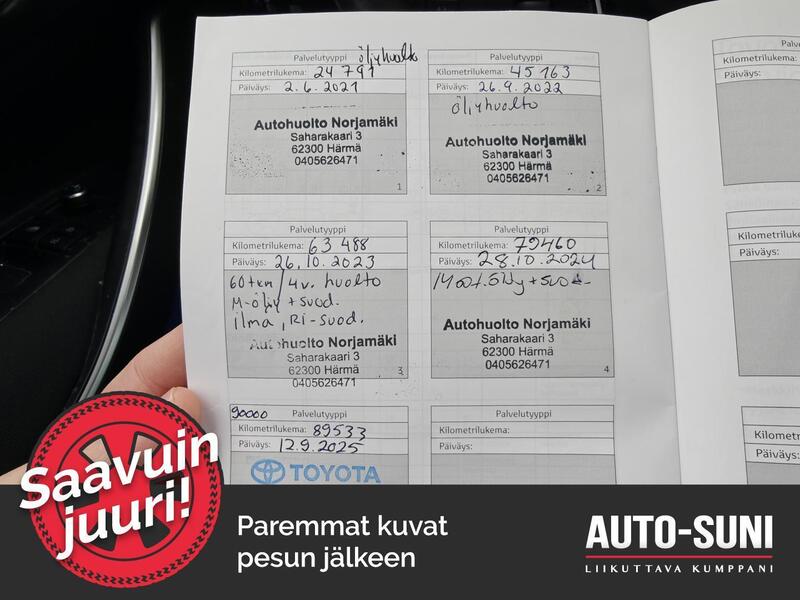 Palvelutyyppi öljyhuolto
Kilometrilukema: 24 791
Päiväys: 2.6.2021
Autohuolto Norjamäki
Saharakaari 3
62300 Härmä
0405626471
1
Palvelutyyppi
Kilometrilukema: 45 163
Päiväys: 26.9.2022
öljyhuolto
Autohuolto Norjamäki
Saharakaari 3
62300 Härmä
0405626471
2
Palvelutyyppi
Kilometrilukema: 63 488
Päiväys: 26.10.2023
60tkm/4v. huolto
M-öljy + suod.
ilma, Ri-suod.
Autohuolto Norjamäki
Saharakaari 3
62300 Härmä
0405626471
3
Palvelutyyppi
Kilometrilukema: 79460
Päiväys: 28.10.2024
Autohuolto Norjamäki
Saharakaari 3
62300 Härmä
0405626471
4
90000 Palvelutyyppi
Kilometrilukema: 89533
Päiväys: 12.9.2025
TOYOTA
Palvelutyyppi
Kilometrilukema:
Päiväys:
Palve
Kilometrilukema:
Päiväys:
Kilometrilukema
Päiväys:
Kilometri
Päiväys:
Saavuin
juuri!
Paremmat kuvat
pesun jälkeen
AUTO-SUNI
LIIKUTTAVA KUMPPANI